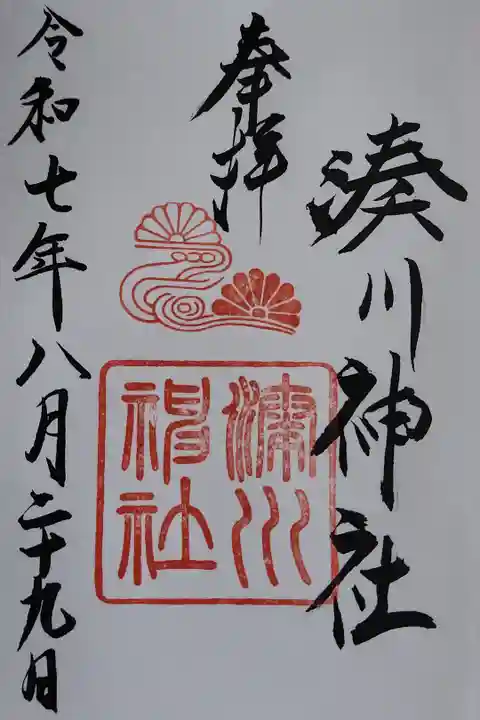 奉拝
湊川神社
湊川
神社
令和七年八月二十九日